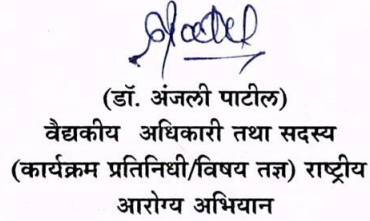 (डॉ. अंजली पाटील)
वैद्यकीय अधिकारी तथा सदस्य
(कार्यक्रम प्रतिनिधी/विषय तज्ञ) राष्ट्रीय
आरोग्य अभियान